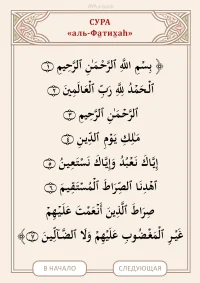 СУРА
«аль-Фатиҳаһ»
﴿ بِسْمِ اللَّهِ ٱلرَّحْمَـٰنِ ٱلرَّحِيمِ ١
ٱلْحَمْدُ لِلَّهِ رَبِّ ٱلْعَالَمِينَ ٢
ٱلرَّحْمَـٰنِ ٱلرَّحِيمِ ٣
مَـٰلِكِ يَوْمِ ٱلدِّينِ ٤
إِيَّاكَ نَعْبُدُ وَإِيَّاكَ نَسْتَعِينُ ٥
ٱهْدِنَا ٱلصِّرَاطَ ٱلْمُسْتَقِيمَ ٦
صِرَاطَ ٱلَّذِينَ أَنْعَمْتَ عَلَيْهِمْ
غَيْرِ ٱلْمَغْضُوبِ عَلَيْهِمْ وَلَا ٱلضَّآلِّينَ ٧ ﴾
В НАЧАЛО СЛЕДУЮЩАЯ